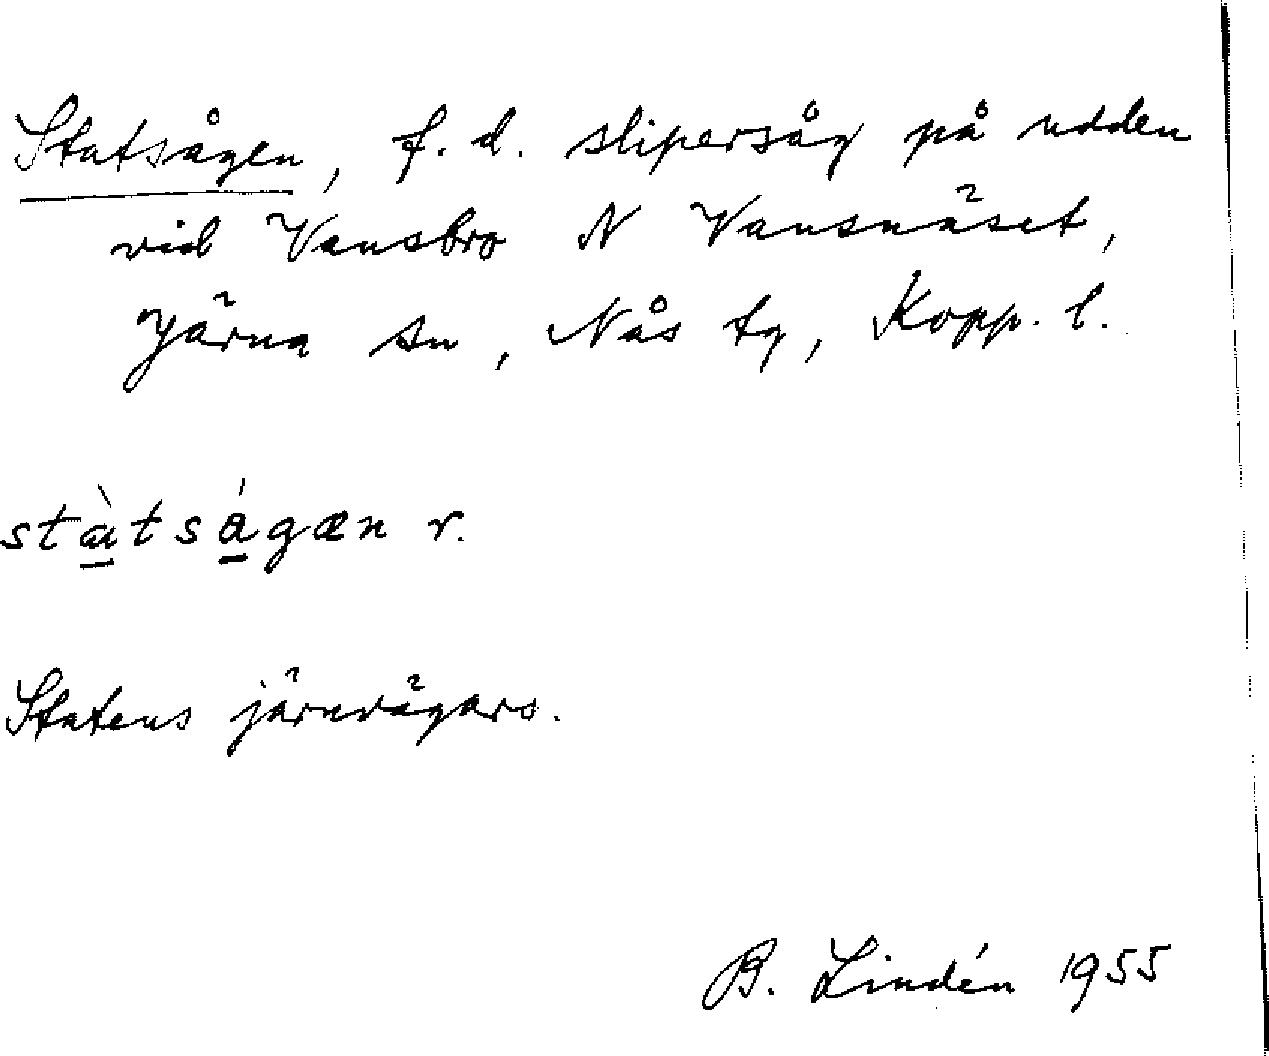 Statsågen, f. d. slipersåg på udden
vid Vansbro N Vansnäset,
Järna sn, Nås tg, Kopp. l.
stà̱tsǻ̱gæn r.
Statens järnvägars.
B. Lindén 1955